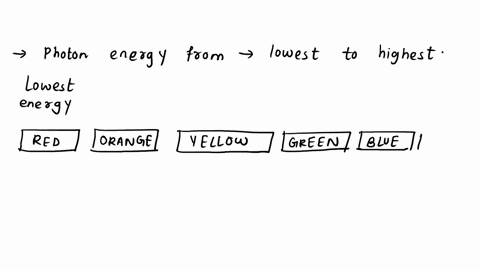 → Photon energy from → lowest to highest.
Lowest
energy
RED ORANGE YELLOW GREEN BLUE